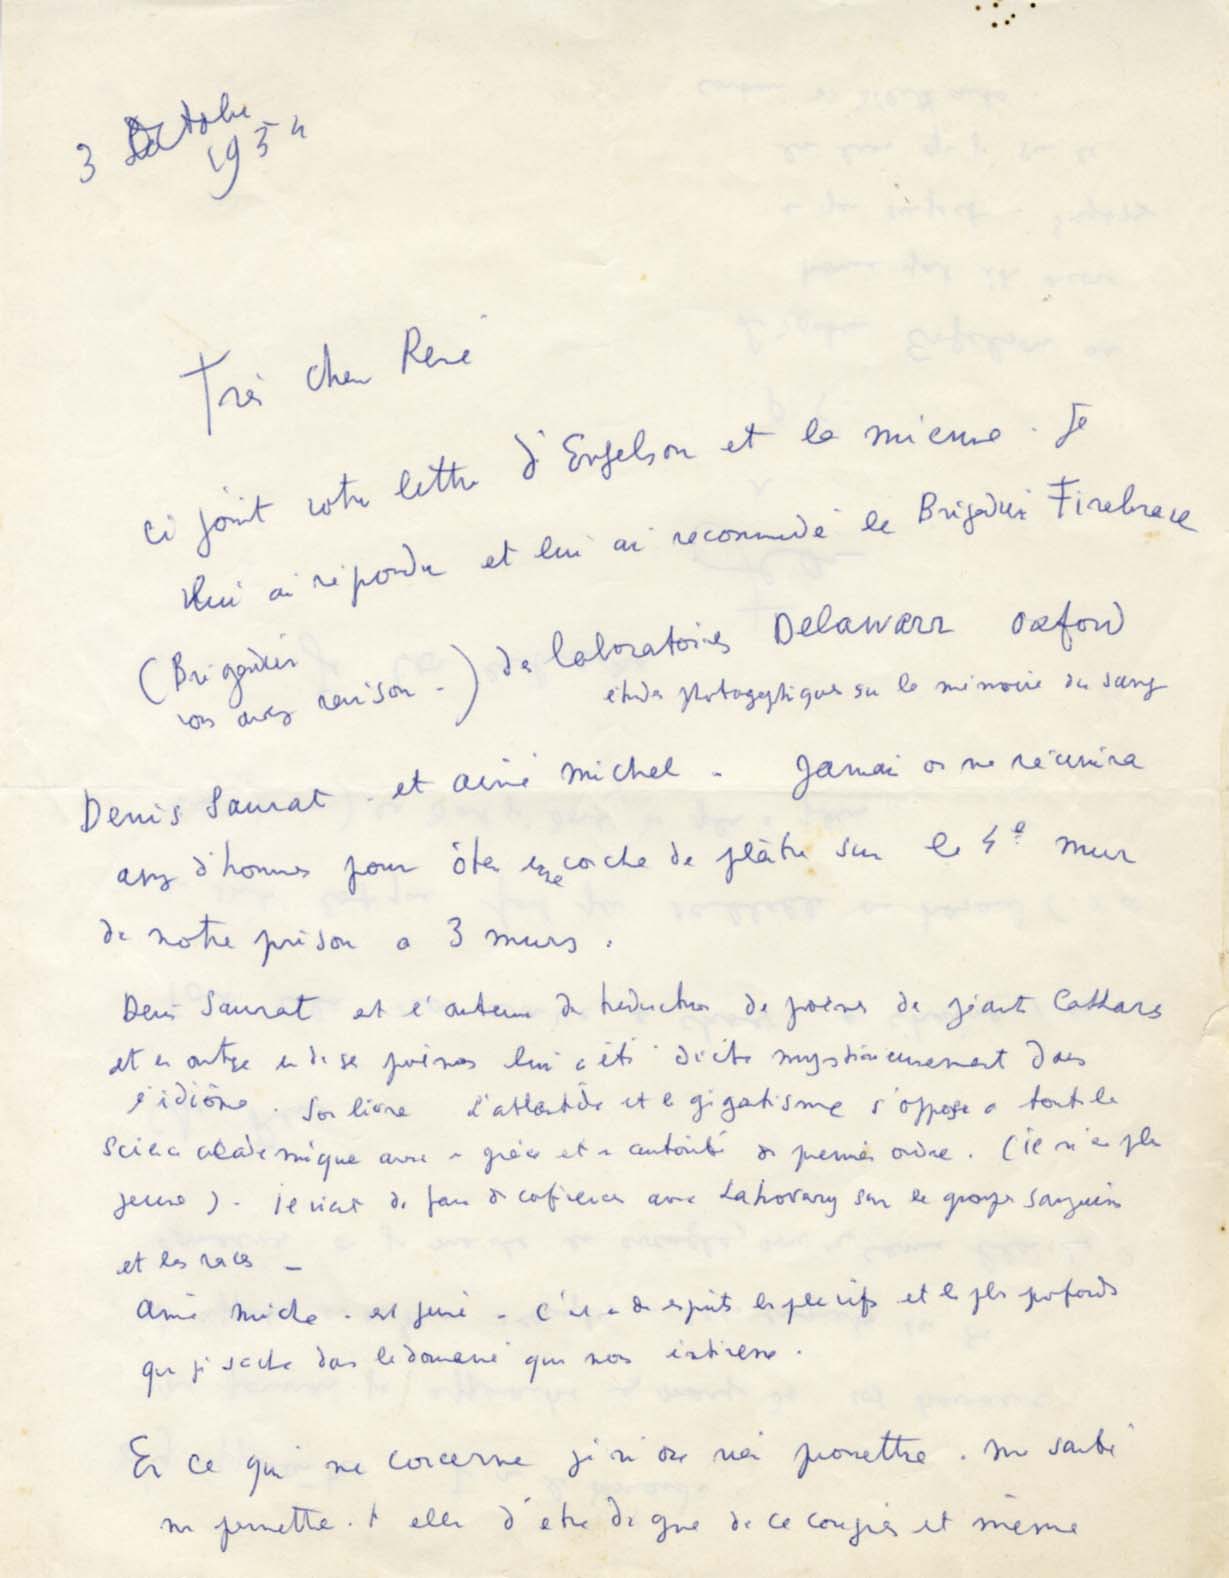 3 Octobre
1954
Très cher René
ci joint votre lettre d'Engelson et la mienne. Je
lui ai répondu et lui ai recommandé le Brigadier Firebrace
(Brigadier
vous avez raison -) des laboratoires Delawarr Oxford
études photographiques sur la mémoire du sang
Denis Saurat et aimé Michel - Jamais on ne réunira
assez d'hommes pour ôter une couche de plâtre sur le 4e mur
de notre prison a 3 murs.
Denis Saurat est l'auteur de traduction de poèmes de géants Cathars
et en outre un de ses poèmes lui a été dicté mystérieusement dans
l'idiôme. Son livre L'atlantide et le gigantisme s'oppose a toute la
science académique avec une grâce et une autorité de premier ordre. (il n'est plus
jeune). il vient de faire des conférences avec Lahovary sur les groupes sanguins
et les races -
Aimé Michel - est jeune - c'est un des esprits les plus vifs et les plus profonds
que je sache dans le domaine qui nous intéresse.
En ce qui me concerne je n'ose rien promettre. ma santé
me permettra-t-elle d'être digne de ce congrès et même